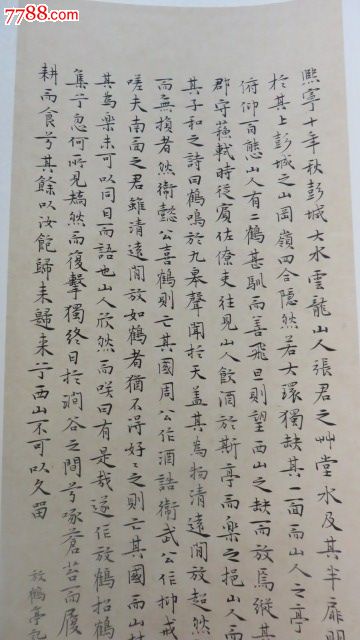 7788.com
熙寧十年秋彭城大水雲龍山人張君之艸堂水及其半扉
於其上彭城之山岡嶺四合隱然若大環獨缺其一面而山人之亭
俯仰百態山人有二鶴甚馴而善飛旦則望西山之缺而放焉縱其
郡守蘇軾時從賓佐僚吏往見山人飲酒於斯亭而樂之挹山人而
其子和之詩曰鶴鳴於九皋聲聞於天蓋其為物清遠閒放超然
而無損者然衛懿公喜鶴則亡其國周公作酒誥衛武公作抑戒
嗟夫南面之君雖清遠閒放如鶴者猶不得好〻之則亡其國而山
其為樂未可以同日而語也山人欣然而咲曰有是哉遂作放鶴招鶴
集兮忽何所見矯然而復擊獨終日於澗谷之間兮啄蒼苔而履
耕而食兮其餘以汝飽歸来歸来兮西山不可以久留
放鶴亭記